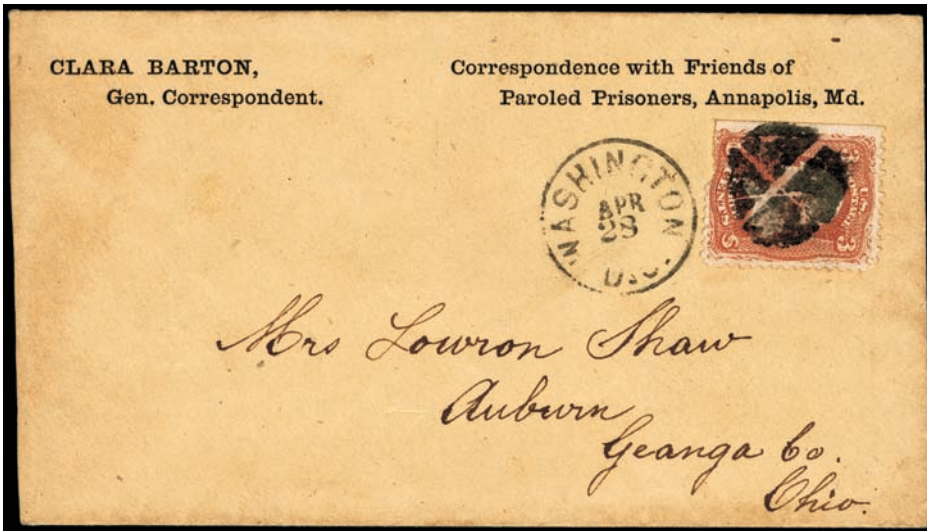 CLARA BARTON,
Gen. Correspondent.
Correspondence with Friends of
Paroled Prisoners, Annapolis, Md.
WASHINGTON
APR
28
D.C.
3 3
U.S. POSTAGE
Mrs Lowron Shaw
Auburn
Geanga Co.
Ohio.